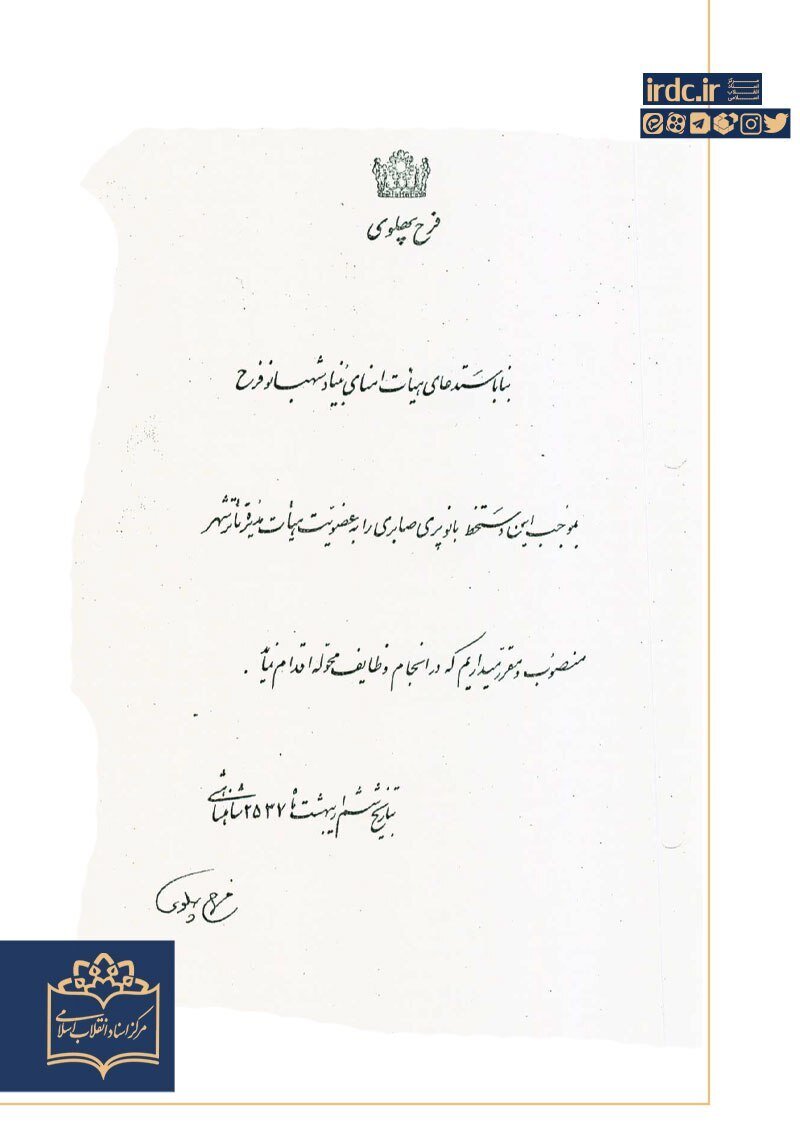 irdc.ir
مرکز
اسناد
انقلاب
اسلامی
فرح پهلوی
بنا باستدعای هیأت امنای بنیاد شهبانو فرح
بموجب این دستخط بانو پری صابری را به عضویت هیأت مدیره تآتر شهر
منصوب و مقرر میداریم که در انجام وظایف محوله اقدام نماید.
بتاریخ ششم اردیبهشت ماه ۲۵۳۷ شاهنشاهی
فرح پهلوی
مرکز اسناد انقلاب اسلامی